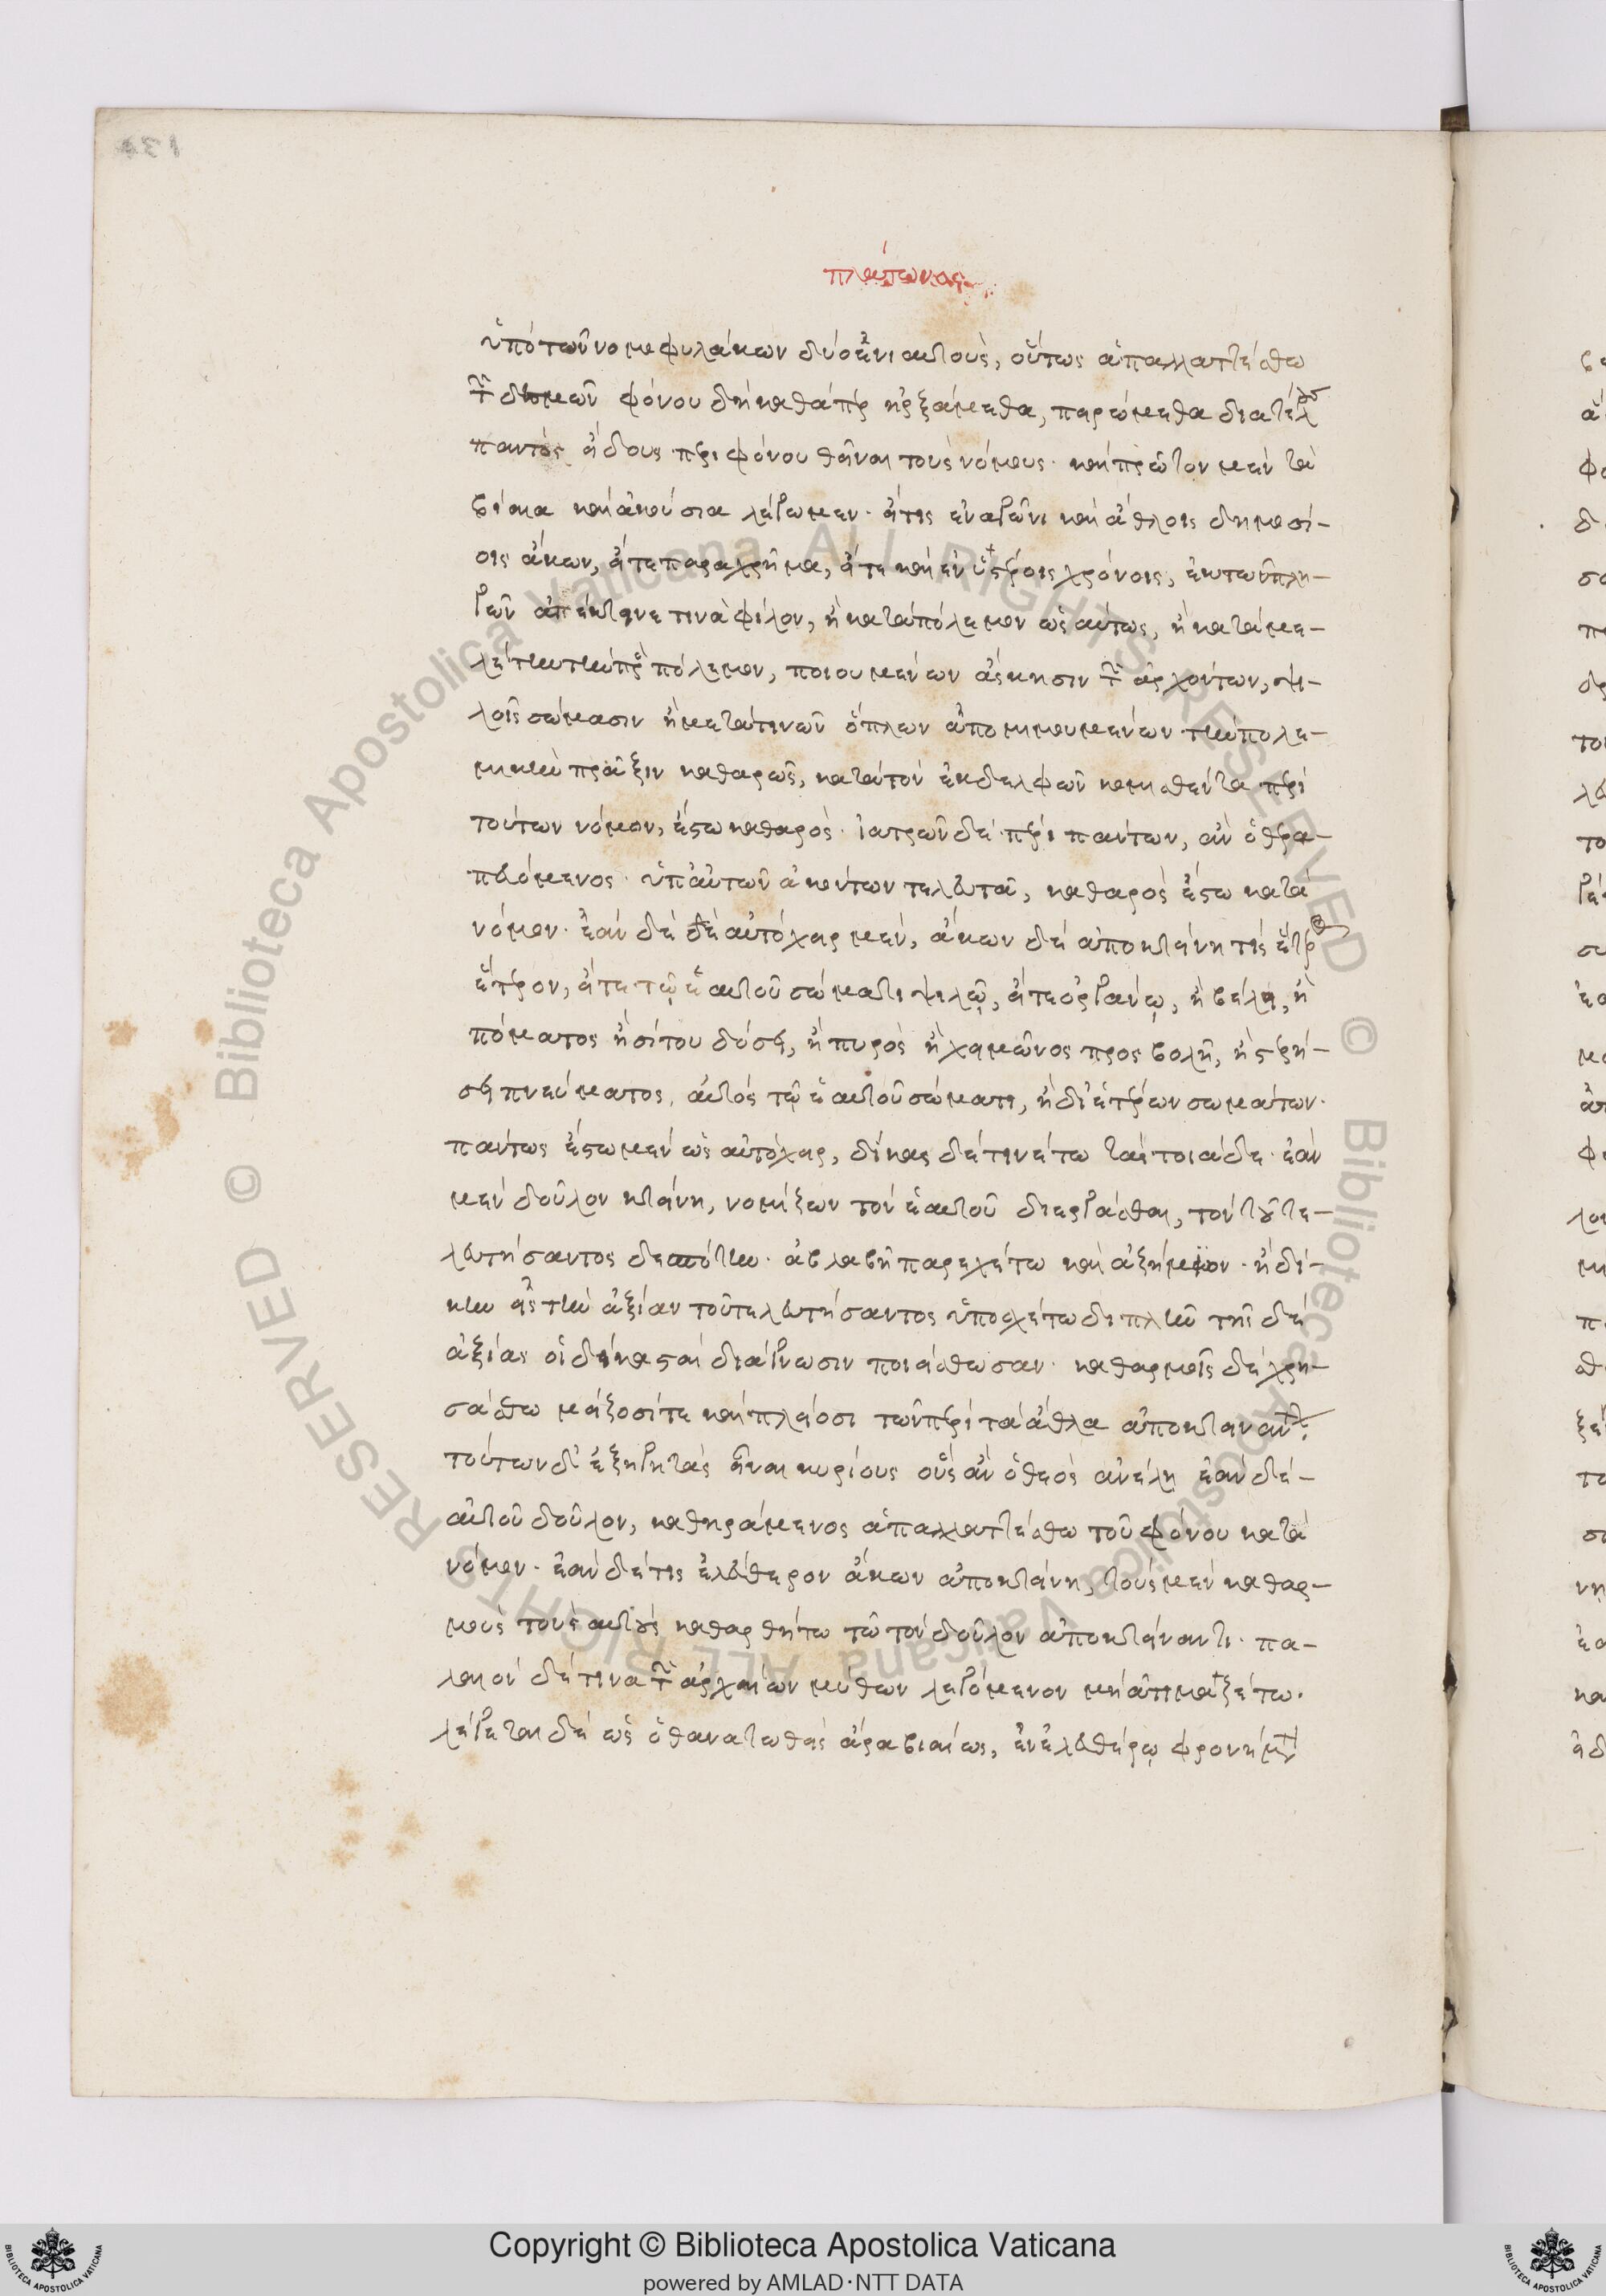 πλάτωνος
ὑπὸ τῶν νομοφυλάκων δύο ἐνιαυτοὺς, οὕτως ἀπαλλαττέσθω
τῶν δεσμῶν φόνου δὴ καθάπερ ἠρξάμεθα, παρώμεθα διὰ τέλους
παντὸς εἴδους περὶ φόνου θεῖναι τοὺς νόμους· καὶ πρῶτον μὲν τὰ
βίαια καὶ ἀκούσια λέγωμεν· εἴ τις ἐν ἀγῶνι καὶ ἄθλοις δημοσί-
οις ἄκων, εἴτε παραχρῆμα, εἴτε καὶ ἐν ὑστέροις χρόνοις, ἐκ τῶν πλη-
γῶν ἀπέκτεινε τινὰ φίλον, ἢ κατὰ πόλεμον ὡσαύτως, ἢ κατὰ με-
λέτην τὴν πρὸς πόλεμον, ποιουμένων ἄσκησιν τῶν ἀρχόντων, ψι-
λοῖς σώμασιν ἢ μετά τινων ὅπλων ἀπομιμουμένων τὴν πολε-
μικὴν πρᾶξιν καθαρῶς, κατὰ τὸν ἐκ δελφῶν κομισθέντα περὶ
τούτων νόμον, ἔστω καθαρός· ἰατρῶν δὲ περὶ πάντων, ἂν ὁ θερα-
πευόμενος ὑπ' αὐτῶν ἀκόντων τελευτᾷ, καθαρὸς ἔστω κατὰ
νόμον· ἐὰν δὲ αὐτόχειρ μὲν, ἄκων δὲ ἀποκτείνῃ τις ἕτερος
ἕτερον, εἴτε τῷ ἑαυτοῦ σώματι ψιλῷ, εἴτε ὀργάνῳ, ἢ βέλει, ἢ
πόματος ἢ σίτου δόσει, ἢ πυρὸς ἢ χειμῶνος προσβολῇ, ἢ στερή-
σει πνεύματος, αὐτὸς τῷ ἑαυτοῦ σώματι, ἢ δι' ἑτέρων σωμάτων·
πάντως ἔστω μὲν ὡς αὐτόχειρ, δίκας δὲ τινέτω τὰς τοιάσδε· ἐὰν
μὲν δοῦλον κτείνῃ, νομίζων τὸν ἑαυτοῦ διειργάσθαι, τὸν τοῦ τε-
λευτήσαντος δεσπότην· ἀβλαβῆ παρεχέτω καὶ ἀζήμιον· ἢ δί-
κην εἰς τὴν ἀξίαν τοῦ τελευτήσαντος ὑποσχέτω διπλῆν τῆς δὲ
ἀξίας οἱ δικασταὶ διάγνωσιν ποιείσθωσαν· καθαρμοῖς δὲ χρη-
σάσθω μείζοσί τε καὶ πλείοσι τῶν περὶ τὰ ἆθλα ἀποκτεινάντων·
τούτων δ' ἐξηγητὰς εἶναι κυρίους οὓς ἂν ὁ θεὸς ἀνέλῃ ἐὰν δὲ-
αὑτοῦ δοῦλον, καθηράμενος ἀπαλλαττέσθω τοῦ φόνου κατὰ
νόμον· ἐὰν δέ τις ἐλεύθερον ἄκων ἀποκτείνῃ, τοὺς μὲν καθαρ-
μοὺς τοὺς αὐτοὺς καθαρθήτω τῷ τὸν δοῦλον ἀποκτείναντι· πα-
λαιὸν δέ τινα τῶν ἀρχαίων μύθων λεγόμενον μὴ ἀτιμαζέτω.
λέγεται δὲ ὡς ὁ θανατωθεὶς ἄρα βιαίως, ἐν ἐλευθέρῳ φρονήματι